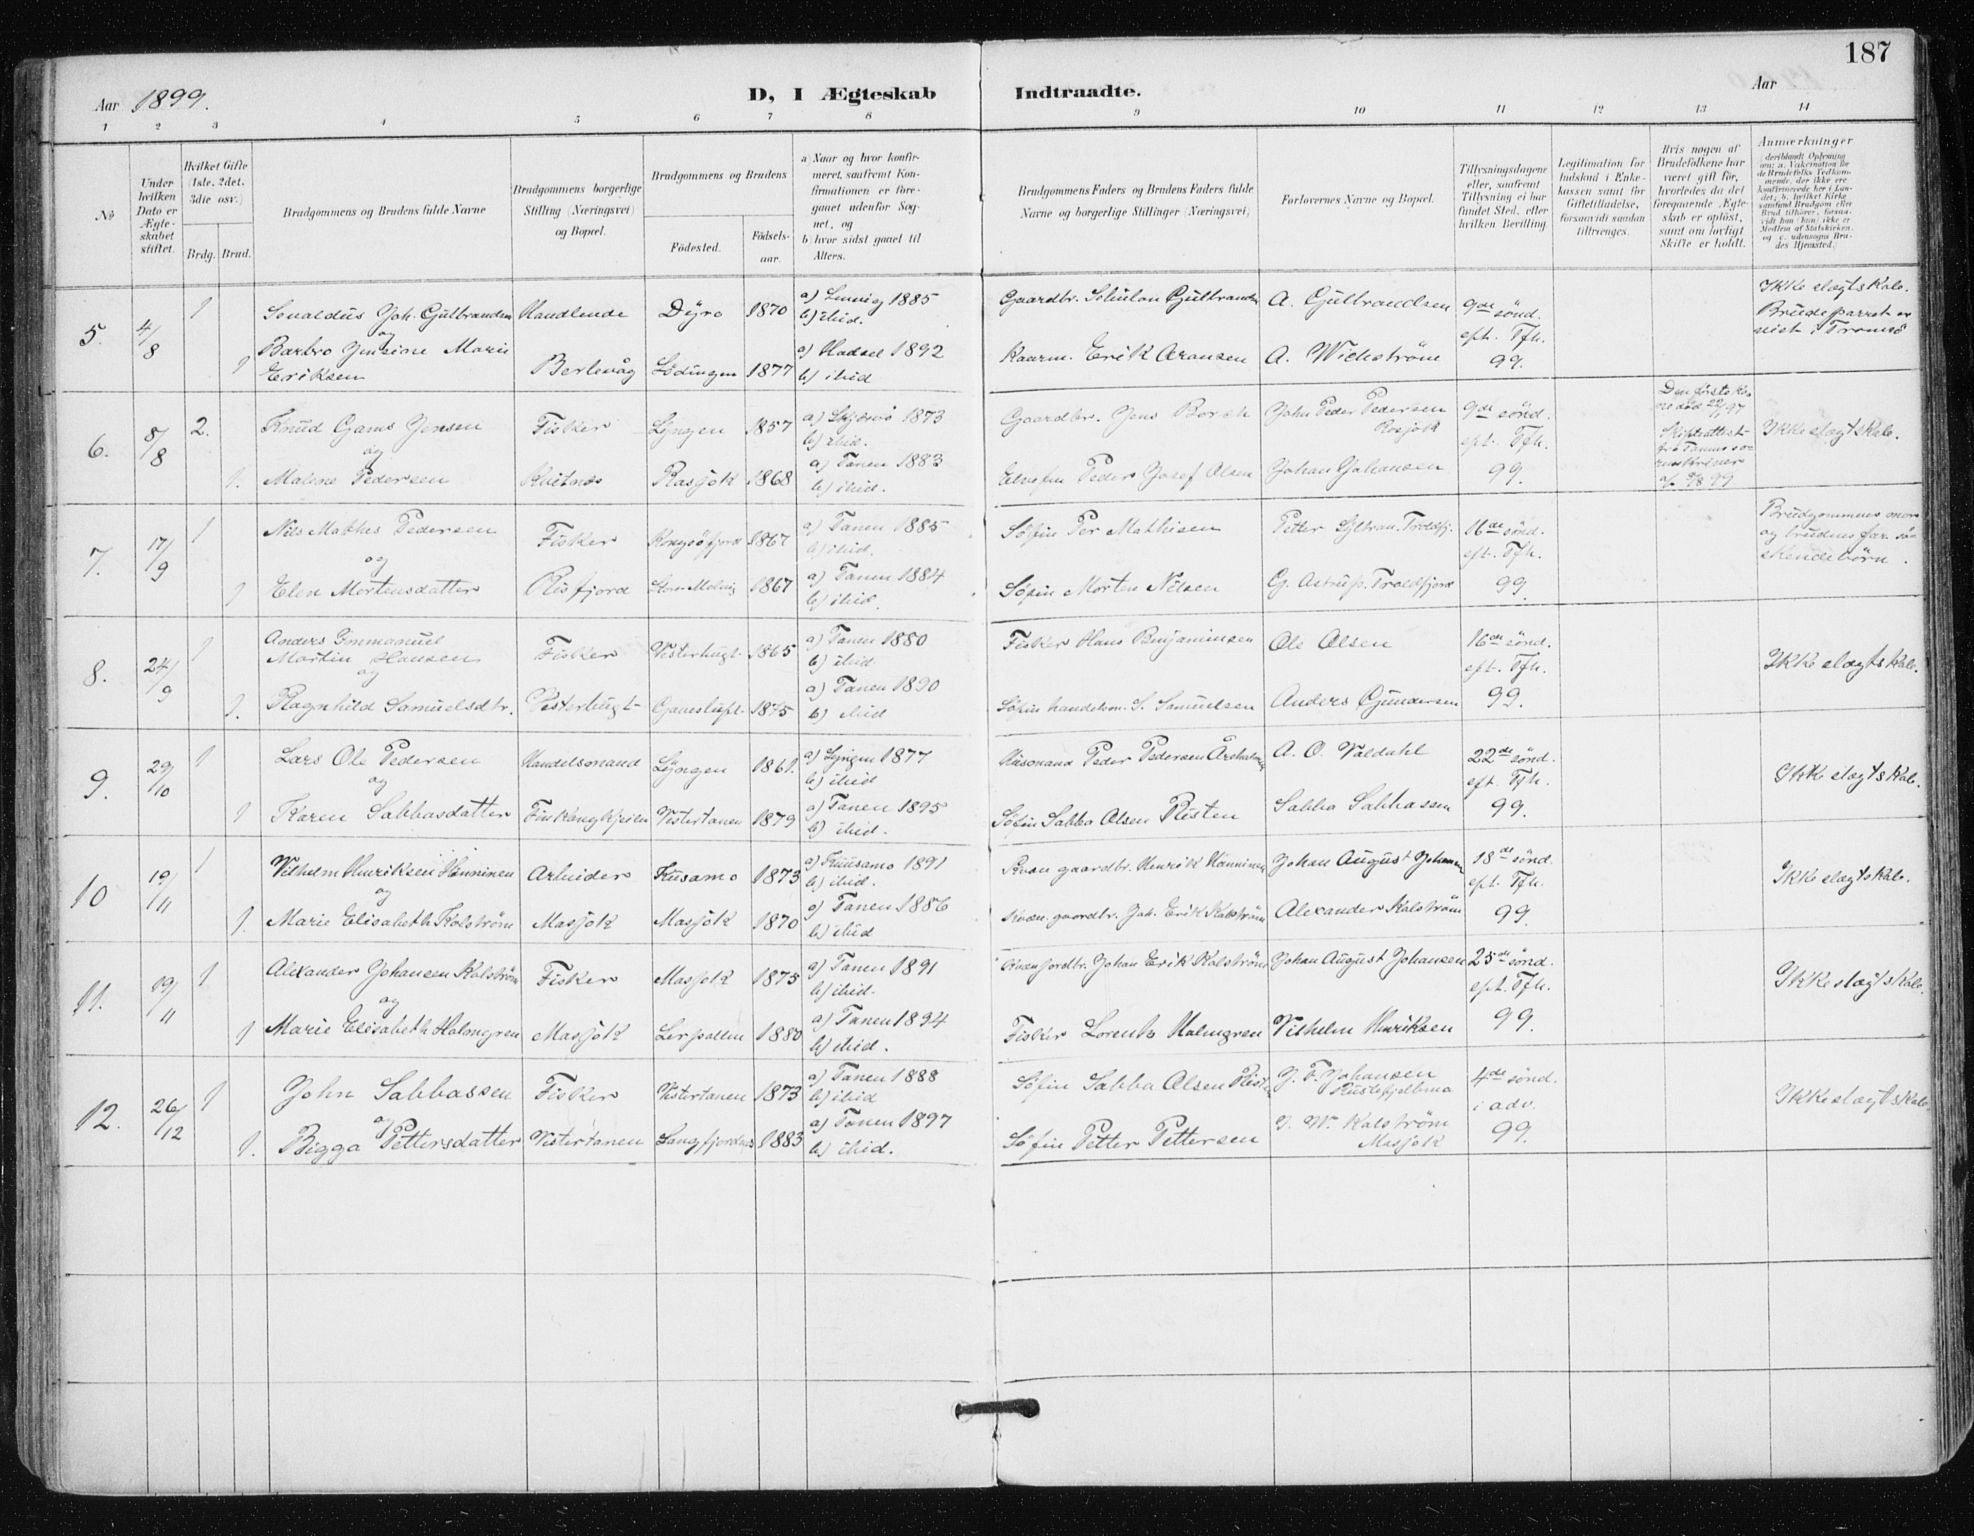 187
Aar 1899.
D, I Ægteskab Indtraadte.
Aar
1 2 3 4 5 6 7 8 9 10 11 12 13 14
No
Under hvilken Dato er Ægteskabet stiftet.
Hvilket Gifte (1ste, 2det, 3die osv.)
Brdg. Brud.
Brudgommens og Brudens fulde Navne
Brudgommens borgerlige Stilling (Næringsvei) og Bopæl.
Brudgommens og Brudens
Fødested.
Fødselsaar.
a) Naar og hvor konfirmeret, saafremt Konfirmationen er foregaaet udenfor Sognet, og
b) hvor sidst gaaet til Alters.
Brudgommens Faders og Brudens Faders fulde Navne og borgerlige Stillinger (Næringsvei)
Forlovernes Navne og Bopæl.
Tillysningsdagene eller, saafremt Tillysning ei har fundet Sted, efter hvilken Bevilling.
Legitimation for Indskud i Enkekassen samt for Giftetilladelse, forsaavidt saadan tiltrænges.
Hvis nogen af Brudefolkene har været gift før, hvorledes da det foregaaende Ægteskab er opløst, samt om lovligt Skifte er holdt.
Anmærkninger
5. 4/8 1 Joh. Gulbrandsen Handlende Dyrø 1870 a) 1885 b) ibid. Gaardbr. Gulbrandsen A. Gulbrandsen 9de sønd. Ikke slægtskab.
og eft. Tfh. Brudeparret er viet i Tromsø
1 Barbro Jensine Marie Eriksen Berlevåg Lödingen 1877 a) Hadsel 1892 b) ibid Erik Aronsen A. Wichstrøm 99.
6. 5/8 2. Knud Gams Jensen Fisker Lyngen 1857 a) Skjærvø 1873 b) ibid. Gaardbr. Jens Borch John Peder Pedersen 9de sønd. Den første kone død 22/1 97 Ikke slægtskab.
og eft. Tfh. Skifteattest fra
1. Malene Pedersen Kvitnæs Rasjok 1868 a) Tanen 1883 b) ibid. Elvefin Peder Josef Olsen Johan Johansen 99.
7. 17/9 1 Nils Mathis Pedersen Fisker Kongsøfjord 1867 a) Tanen 1885 b) ibid. Søfin Per Mathisen Petter Troldfj. 16de sønd. Brudgommens mor og brudens far søskendebørn.
og eft. Tfh.
1 Elen Mortensdatter Risfjord 1867 a) Tanen 1884 b) ibid. Søfin Morten Nilsen G. Astrup. Troldfjord 99
8. 24/9 1 Anders Emmanuel Martin Hansen Fisker Vesterbugt 1865 a) Tanen 1880 b) ibid Fisker Hans Benjaminsen Ole Olsen 16de sønd. Ikke slægtskab.
og eft. Tfh.
1. Ragnhild Samuelsdtr. Vesterbugt 1875 a) Tanen 1890 b) ibid Søfin handelsm. S. Samuelsen Anders Gundersen 99.
9. 29/10 1 Lars Ole Pedersen Handelsmand Lyngen 1861. a) Lyngen 1877 b) ibid Husmand Peder Pedersen A. O. Valdahl 22de sønd. Ikke slægtskab.
og eft. Tfh.
1 Karen Sabbasdatter Vestertanen 1879 a) Tanen 1895 b) ibid. Søfin Sabba Olsen Risten Sabba Sabbassen 99.
10 19/11 1 Vilhelm Henriksen Hänninen Arbeider Kusamo 1873 a) Kuusamo 1891 b) ibid. Kvæn gaardbr. Henrik Hänninen Johan August Johansen 18de sønd. Ikke slægtskab.
og eft. Tfh.
1. Marie Elisabeth Kalstrøm Masjok Masjok 1870 a) Tanen 1886 b) ibid Kvæn. gaardbr. Joh. Erik Kalstrøm Alexander Kalstrøm 99.
11. 19/11 1 Alexander Johansen Kalstrøm Fisker Masjok 1875 a) Tanen 1891 b) ibid. Johan Erik Kalstrøm Johan August Johansen 25de sønd. Ikke slægtskab.
og eft. Tfh.
1 Marie Elisabeth Holmgren Masjok Lerpollen 1880 a) Tanen 1894 b) ibid. Fisker Lorents Holmgren Vilhelm Henriksen 99.
12. 26/12 1 John Sabbassen Fisker Vestertanen 1873 a) Tanen 1888 b) ibid Søfin Sabba Olsen Risten J. F. Johansen Rustefjelbma 4de sønd. Ikke slægtskab
og i adv.
1. Bigga Pettersdatter Vestertanen Langfjordnes 1883 a) Tanen 1897 b) ibid. Søfin Petter Pettersen J. W. Kalstrøm Masjok 99.